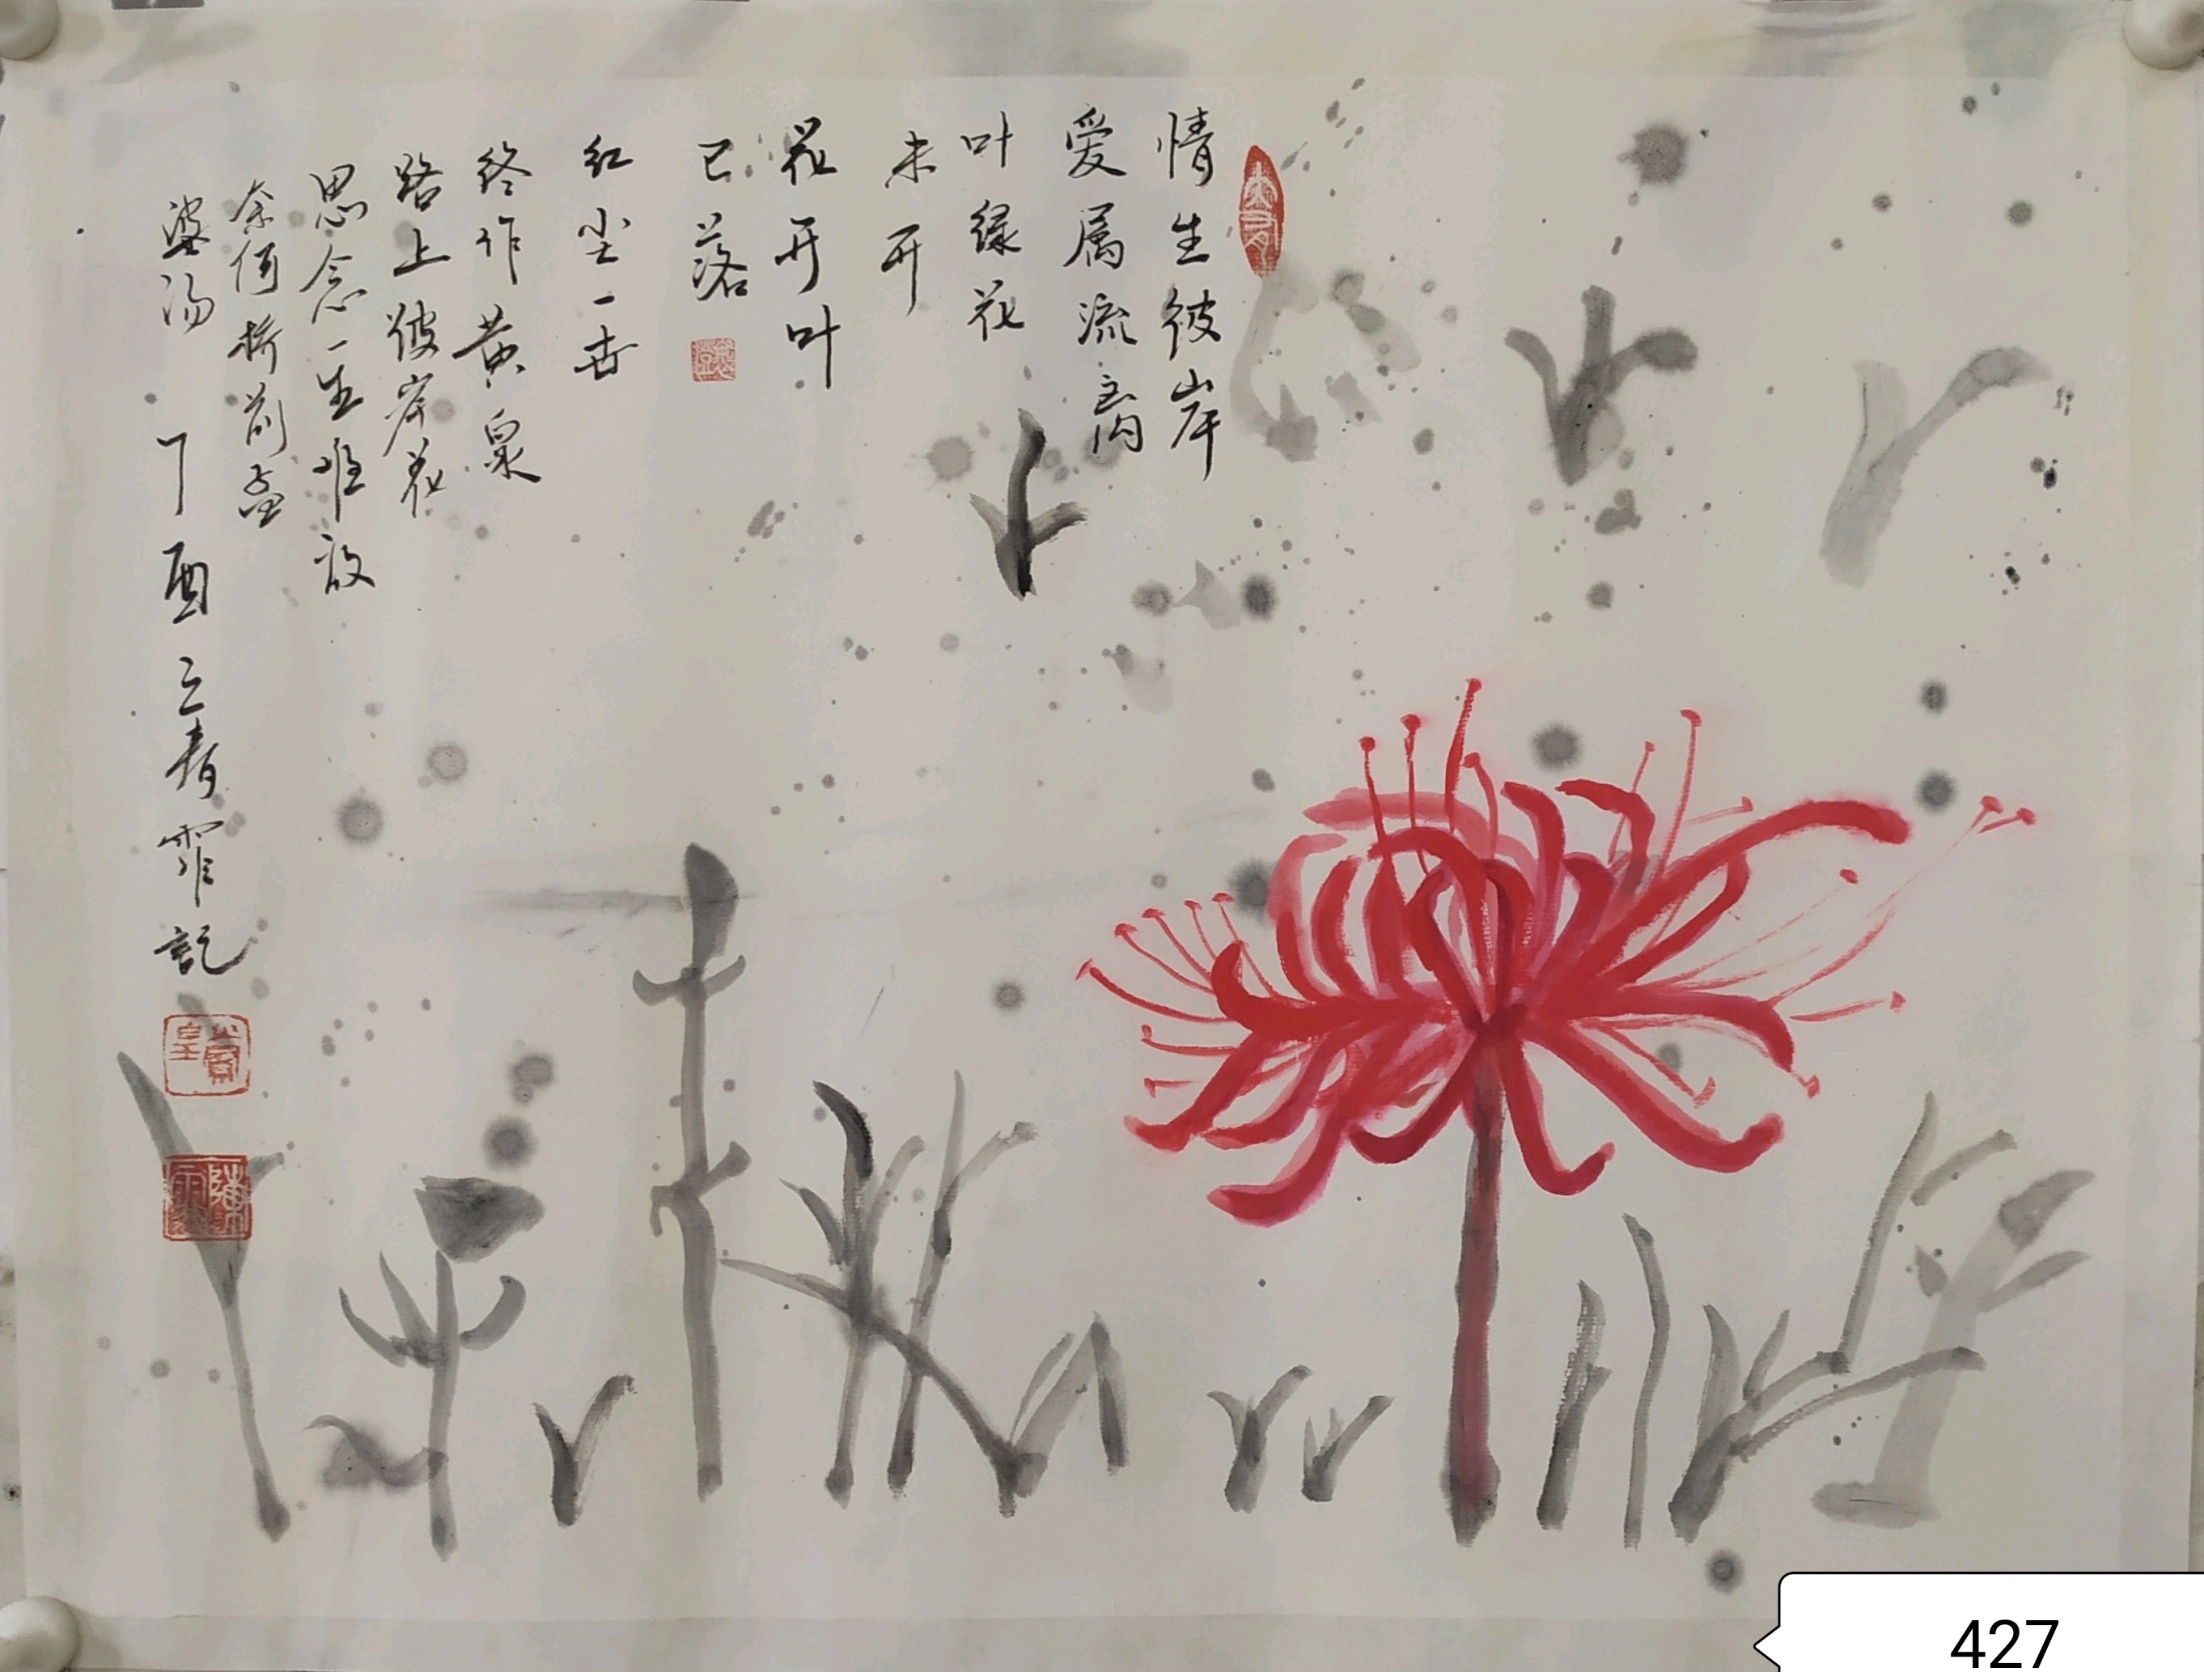 情生彼岸
爱属流离
叶绿花
未开
花开叶
已落
红尘一世
终作黄泉
路上彼岸花
思念一生难敌
奈何桥前孟
婆汤 丁酉立春霏記
427